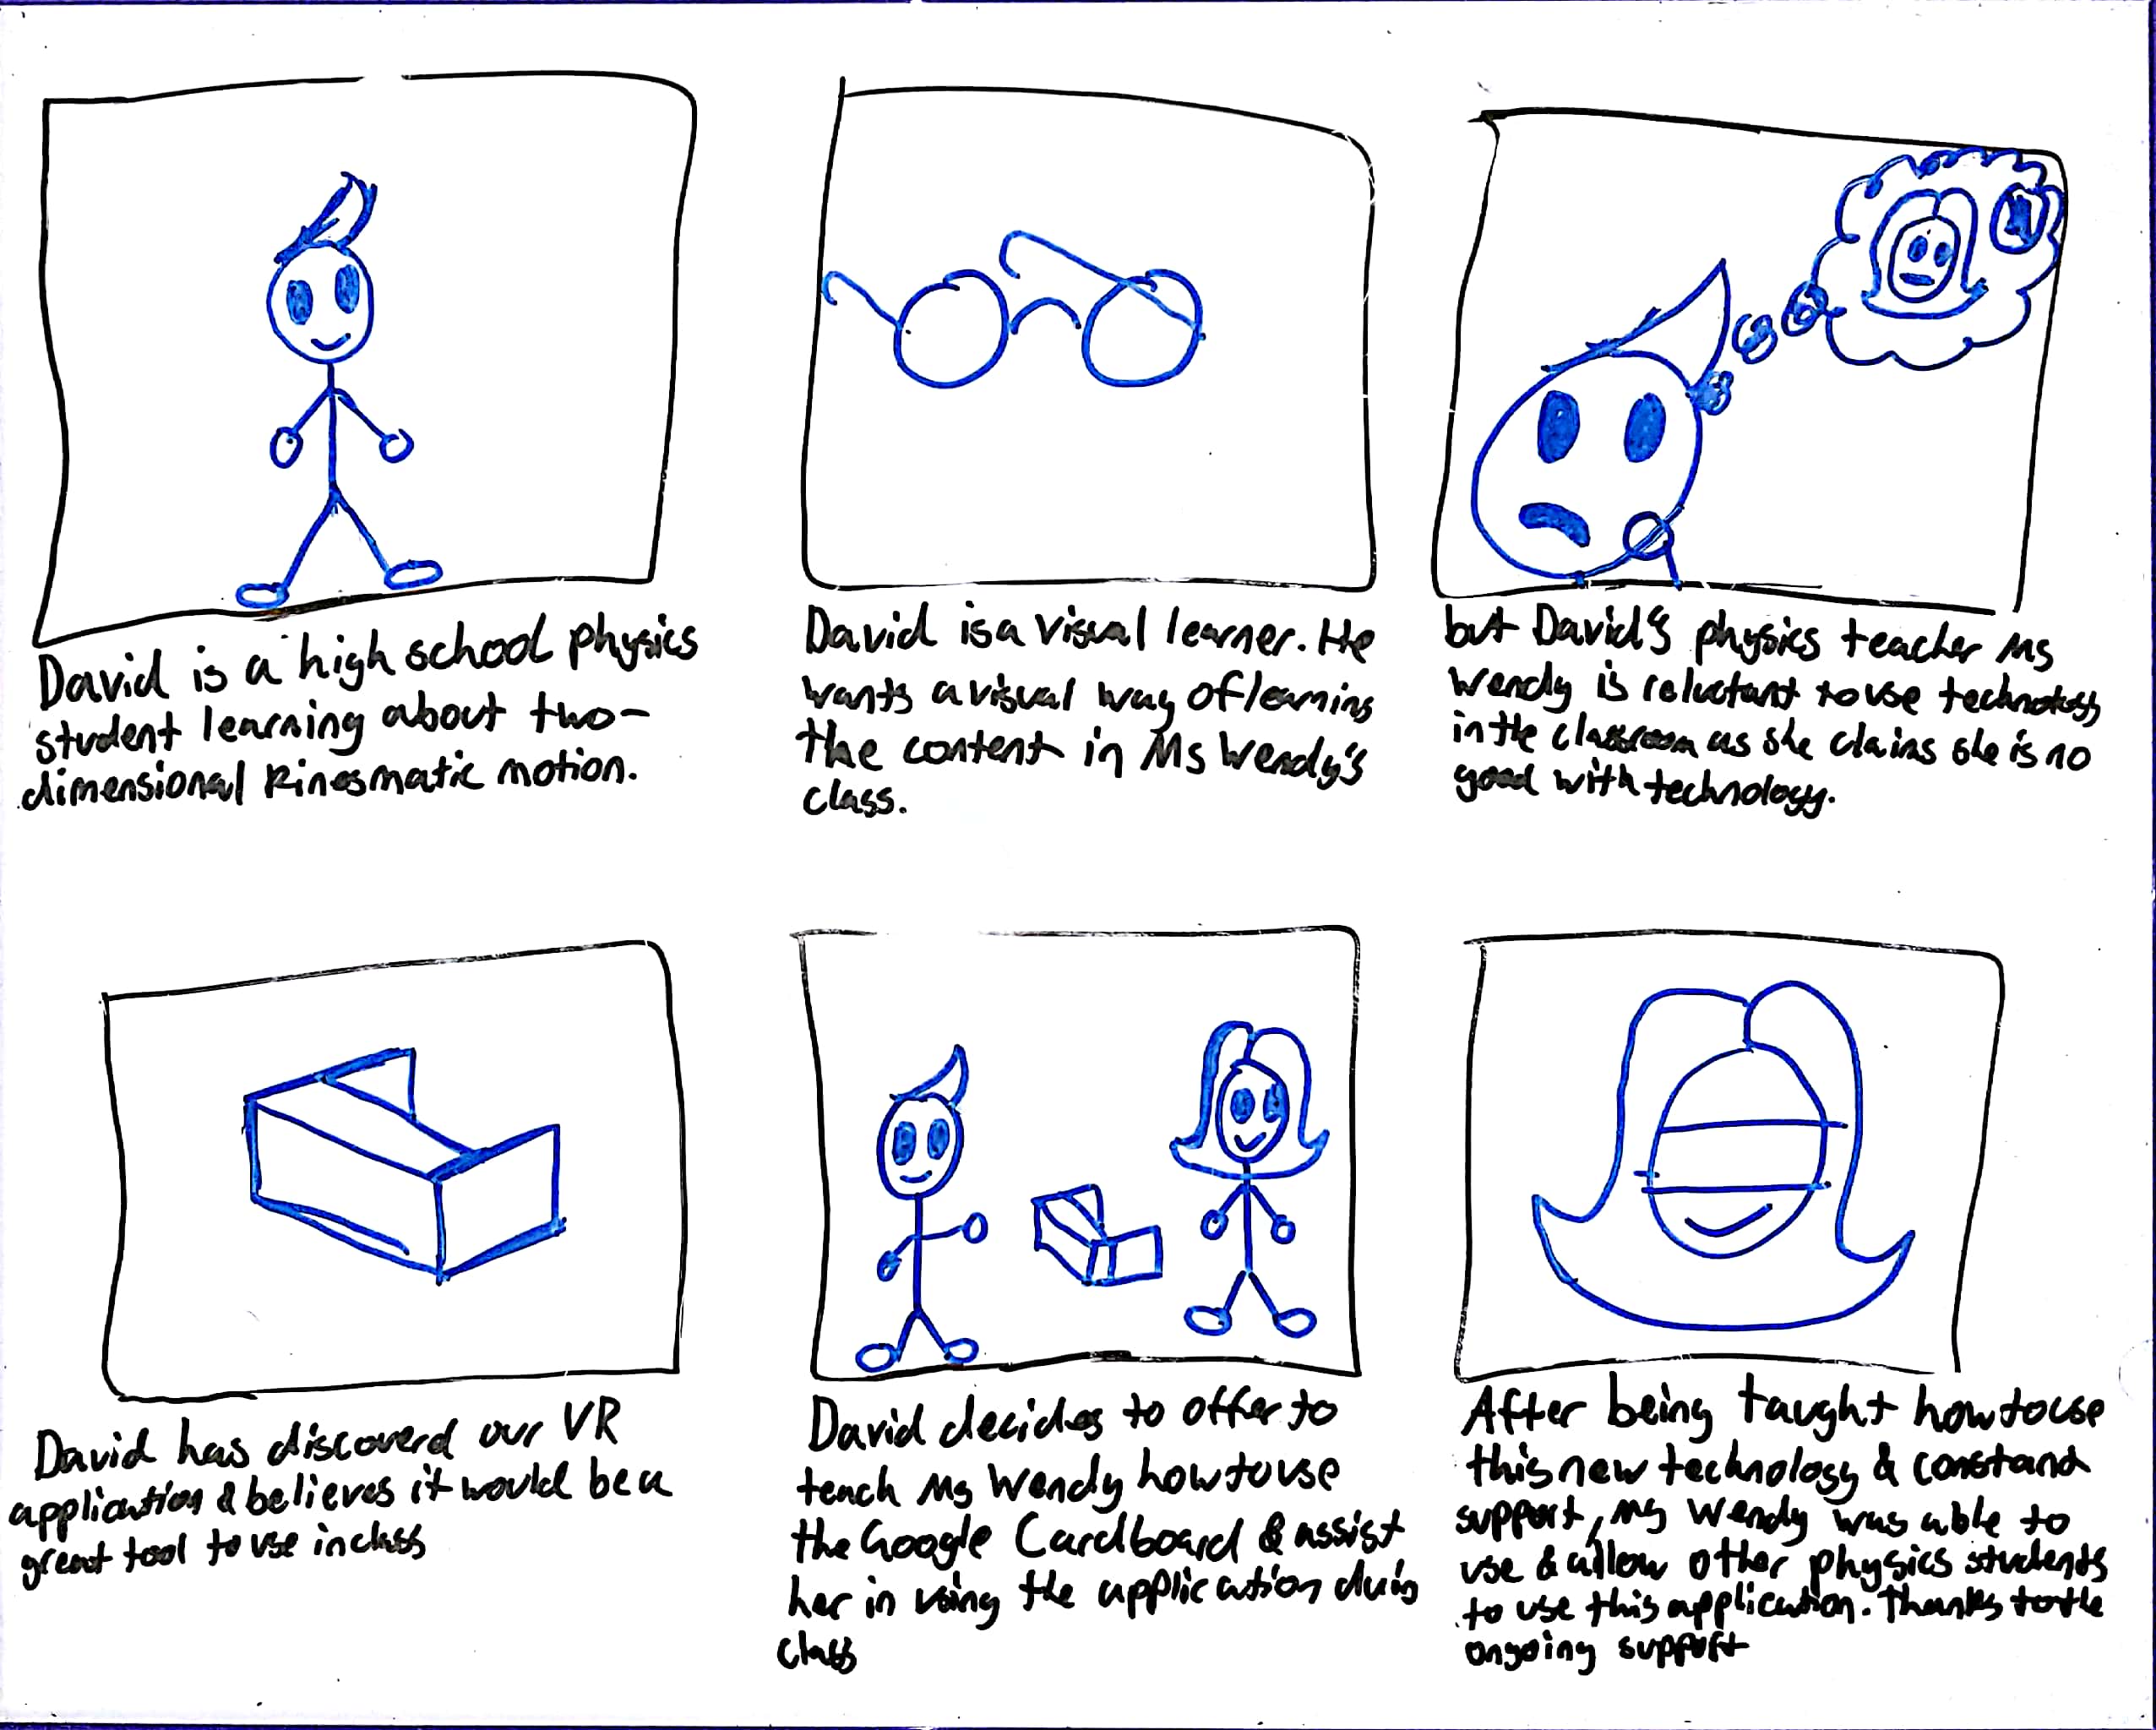 David is a high school physics
student learning about two-
dimensional kinesmatic motion.
David is a visual learner. He
wants a visual way of learning
the content in Ms Wendy's
class.
but David's physics teacher Ms
Wendy is reluctant to use technology
in the classroom as she claims she is no
good with technology.
David has discoverd our VR
application & believes it would be a
great tool to use in class
David decides to offer to
teach Ms Wendy how to use
the Google Cardboard & assist
her in using the application duing
class
After being taught how to use
this new technology & constand
support, Ms Wendy was able to
use & allow other physics students
to use this application. Thanks to the
ongoing support